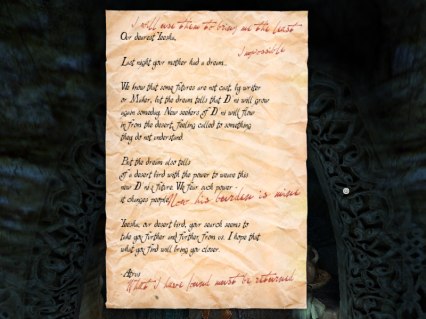 I will use them to bring me the least
Our dearest Yeesha,
Impossible
Last night your mother had a dream...
We know that some futures are not cast, by writer
or Maker, but the dream tells that D'ni will grow
again someday. New seekers of D'ni will flow
in from the desert, feeling called to something
they do not understand.
But the dream also tells
of a desert bird with the power to weave this
new D'ni's future. We fear such power -
it changes people. Now his burden is mine
Yeesha, our desert bird, your search seems to
take you further and further from us. I hope that
what you find will bring you closer.
-Atrus
What I have found must be returned